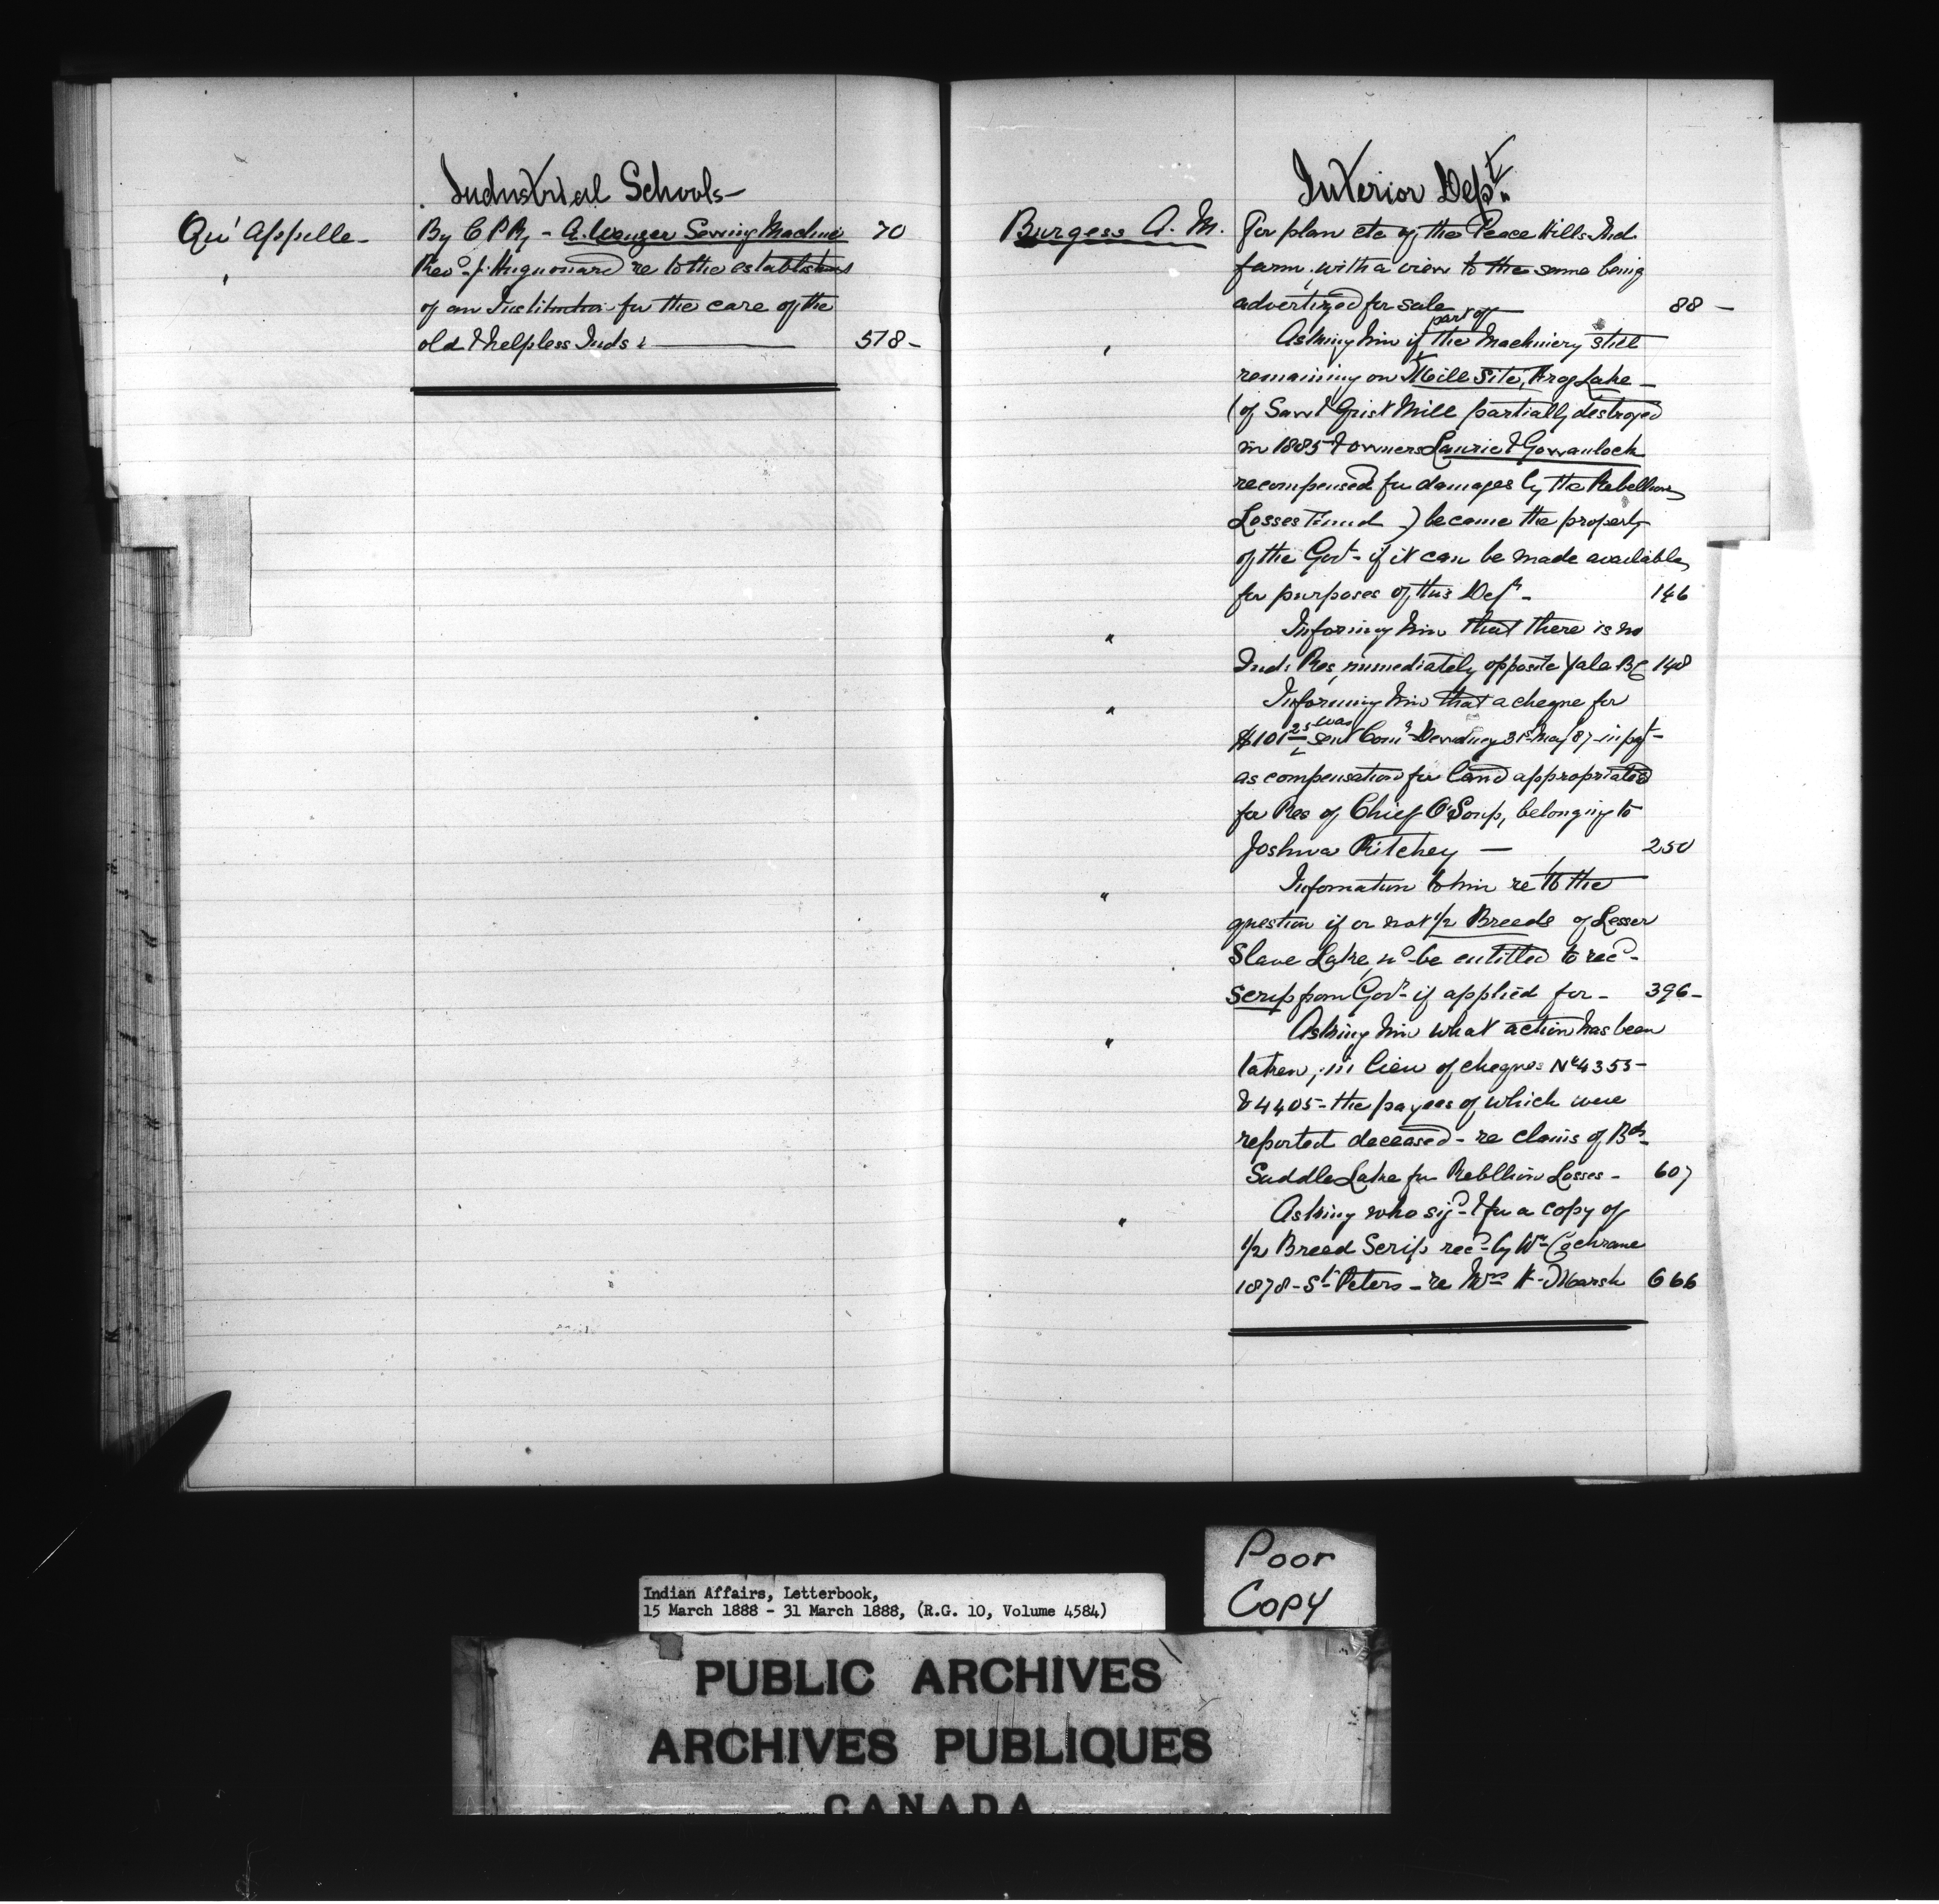 Industrial Schools—
Qu'Appelle— By C P Ry - A. Wanzer Sewing Machine 70
" Revd J. Hugonnard re to the establishment
of an Institution for the care of the
old & helpless Inds. — 578-
Interior Dept.
Burgess A. M. For plan etc of the Peace Hills Ind.
farm, with a view to the same being
advertized for sale — 88 —
" Asking him if part of the Machinery still
remaining on Mill Site, Frog Lake—
(of Saw & Grist Mill partially destroyed
in 1885 & owners Laurie & Gowanlock
recompensed for damages by the Rebellion
Losses Fund) became the property
of the Govt - if it can be made available
for purposes of this Dept - 146
" Informing him that there is no
Ind. Res. immediately opposite Yale BC 148
" Informing him that a cheque for
$101 25 was sent Comr Dewdney 31st May 87 in payt-
as compensation for land appropriated
for Res of Chief O'Soup, belonging to
Joshua Ritchey — 250
" Information to him re to the
question if or not 1/2 Breeds of Lesser
Slave Lake, wd be entitled to recd-
Scrip from Govt - if applied for - 396-
" Asking him what action has been
taken, in lieu of cheques No 4355-
& 4405 - the payees of which were
reported deceased - re claims of Bds
Saddle Lake for Rebllion Losses - 607
" Asking who sigd & for a copy of
1/2 Breed Scrip recd by Wm Cochrane
1878 - St Peters - re Mrs H. Marsh 666
Poor
Copy
Indian Affairs, Letterbook,
15 March 1888 - 31 March 1888, (R.G. 10, Volume 4584)
PUBLIC ARCHIVES
ARCHIVES PUBLIQUES
CANADA